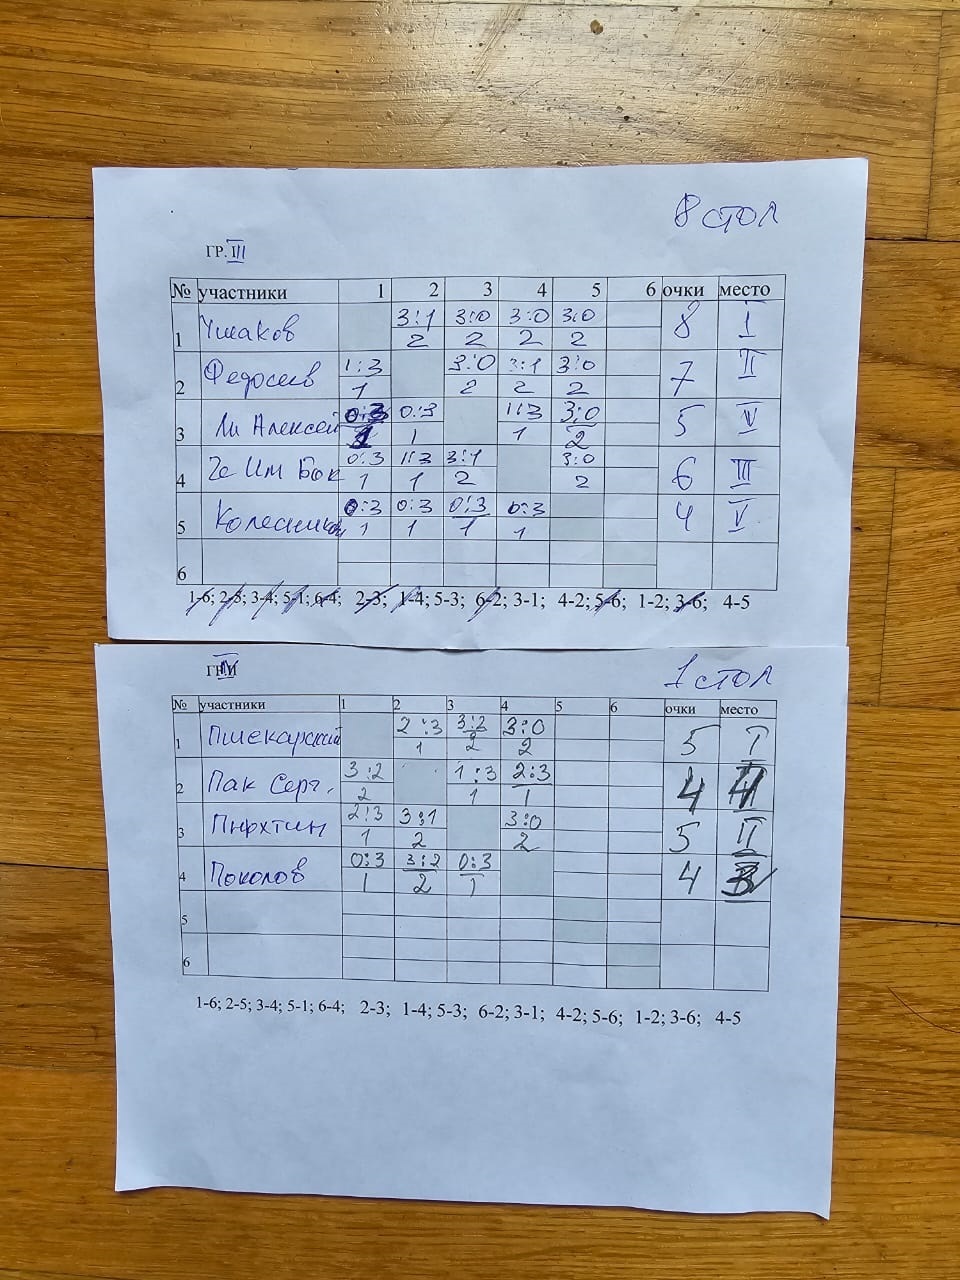 8 стол
ГР. III
№ участники 1 2 3 4 5 6 очки место
1 Ушаков 3:1 3:0 3:0 3:0 8 I
2 2 2 2
2 Федосеев 1:3 3:0 3:1 3:0 7 II
1 2 2 2
3 Ли Алексей 0:3 0:3 1:3 3:0 5 IV
1 1 1 2
4 Че Им Бок 0:3 1:3 3:1 3:0 6 III
1 1 2 2
5 Колесников 0:3 0:3 0:3 0:3 4 V
1 1 1 1
6
1-6; 2-5; 3-4; 5-1; 6-4; 2-3; 1-4; 5-3; 6-2; 3-1; 4-2; 5-6; 1-2; 3-6; 4-5
1 стол
№ участники 1 2 3 4 5 6 очки место
1 Пшекарский 2:3 3:2 3:0 5 I
1 2 2
2 Пак Серг. 3:2 1:3 2:3 4
2 1 1
3 2:3 3:1 3:0 5 II
1 2 2
4 Поколов 0:3 3:2 0:3 4
1 2 1
5
6
1-6; 2-5; 3-4; 5-1; 6-4; 2-3; 1-4; 5-3; 6-2; 3-1; 4-2; 5-6; 1-2; 3-6; 4-5